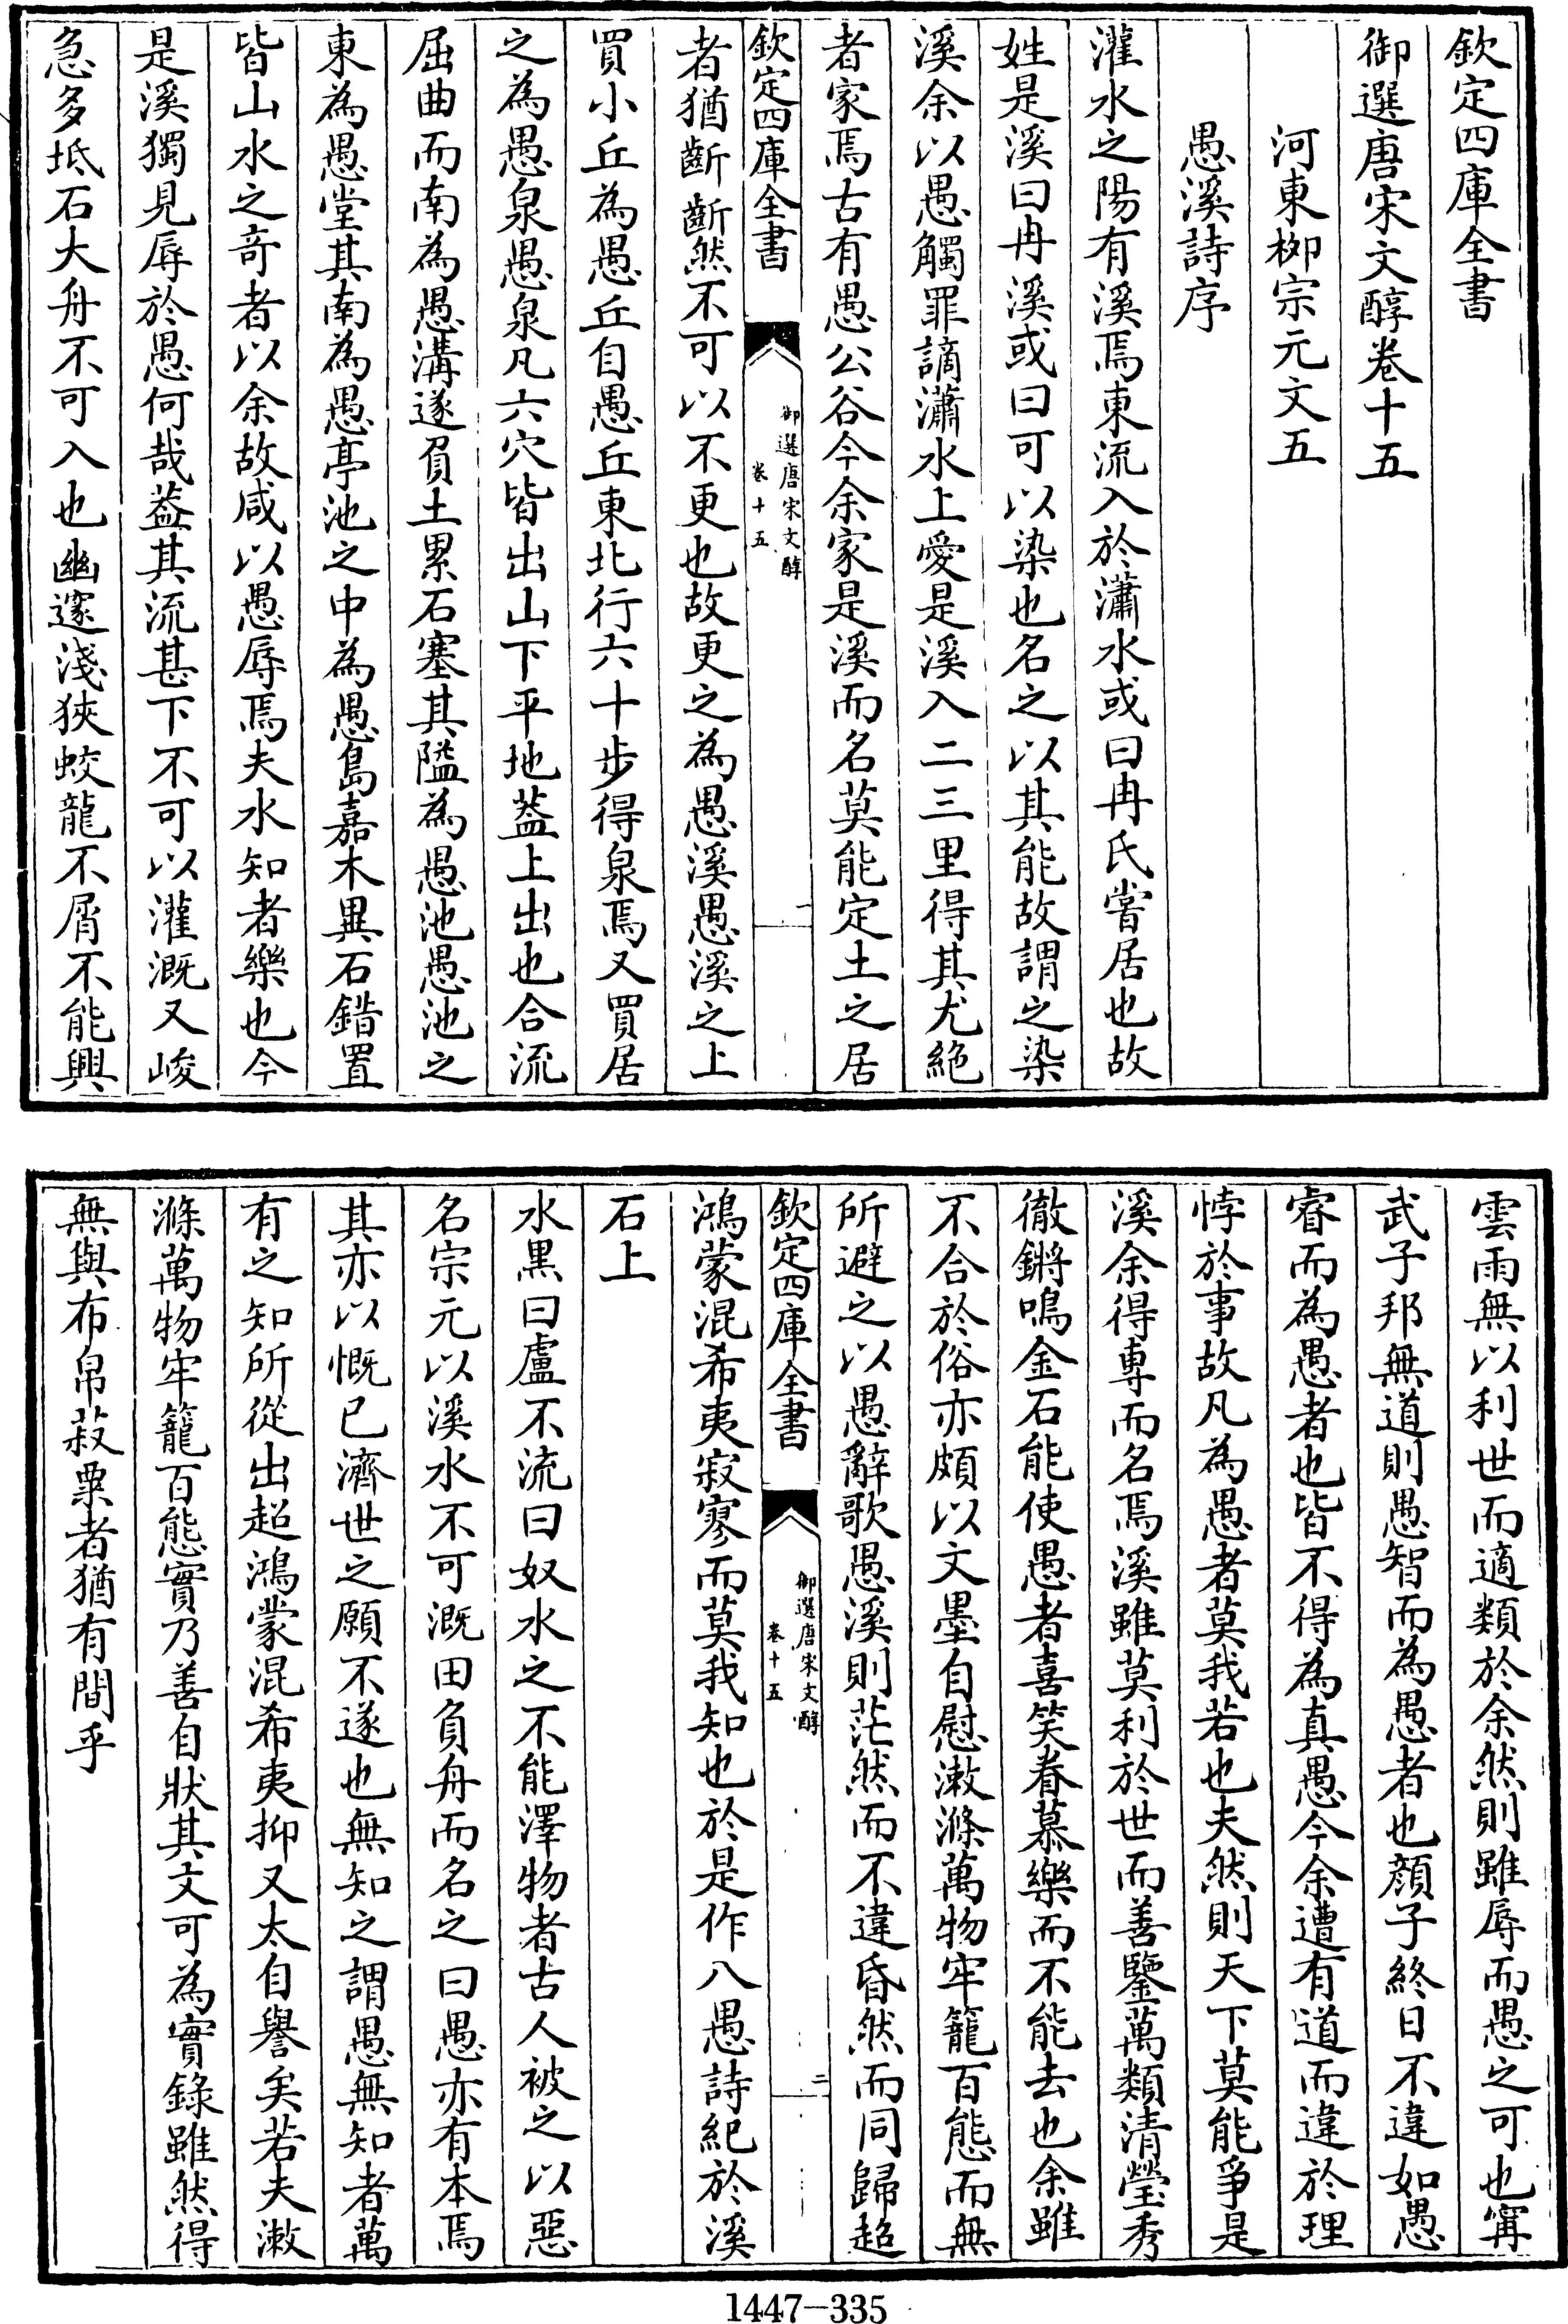 欽定四庫全書
御選唐宋文醇卷十五
河東栁宗元文五
愚溪詩序
灌水之陽有溪焉東流入於瀟水或曰冉氏嘗居也故
姓是溪曰冉溪或曰可以染也名之以其能故謂之染
溪余以愚觸罪謫瀟水上愛是溪入二三里得其尤絶
者家焉古有愚公谷今余家是溪而名莫能定土之居
欽定四庫全書
御選唐宋文醇
卷十五
一
者猶齗齗然不可以不更也故更之為愚溪愚溪之上
買小丘為愚丘自愚丘東北行六十步得泉焉又買居
之為愚泉愚泉凡六穴皆出山下平地葢上出也合流
屈曲而南為愚溝遂負土累石塞其隘為愚池愚池之
東為愚堂其南為愚亭池之中為愚島嘉木異石錯置
皆山水之奇者以余故咸以愚辱焉夫水知者樂也今
是溪獨見辱於愚何哉葢其流甚下不可以灌溉又峻
急多坻石大舟不可入也幽邃淺狹蛟龍不屑不能興
雲雨無以利世而適類於余然則雖辱而愚之可也甯
武子邦無道則愚智而為愚者也顔子終日不違如愚
睿而為愚者也皆不得為真愚今余遭有道而違於理
悖於事故凡為愚者莫我若也夫然則天下莫能爭是
溪余得専而名焉溪雖莫利於世而善鑒萬類清瑩秀
徹鏘鳴金石能使愚者喜笑眷慕樂而不能去也余雖
不合於俗亦頗以文墨自慰漱滌萬物牢籠百態而無
所避之以愚辭歌愚溪則茫然而不違昏然而同歸超
欽定四庫全書
御選唐宋文醇
卷十五
二
鴻蒙混希夷寂寥而莫我知也於是作八愚詩紀於溪
石上
水黒曰盧不流曰奴水之不能澤物者古人被之以惡
名宗元以溪水不可溉田負舟而名之曰愚亦有本焉
其亦以慨已濟世之願不遂也無知之謂愚無知者萬
有之知所從出超鴻蒙混希夷抑又太自譽矣若夫漱
滌萬物牢籠百態實乃善自狀其文可為實錄雖然得
無與布帛菽粟者猶有間乎
1447-335